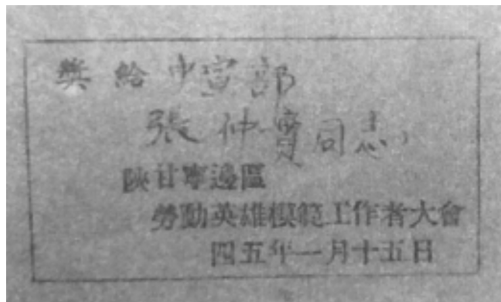 獎給中宣部
張仲實同志
陝甘寧邊區
勞動英雄模範工作者大會
四五年一月十五日